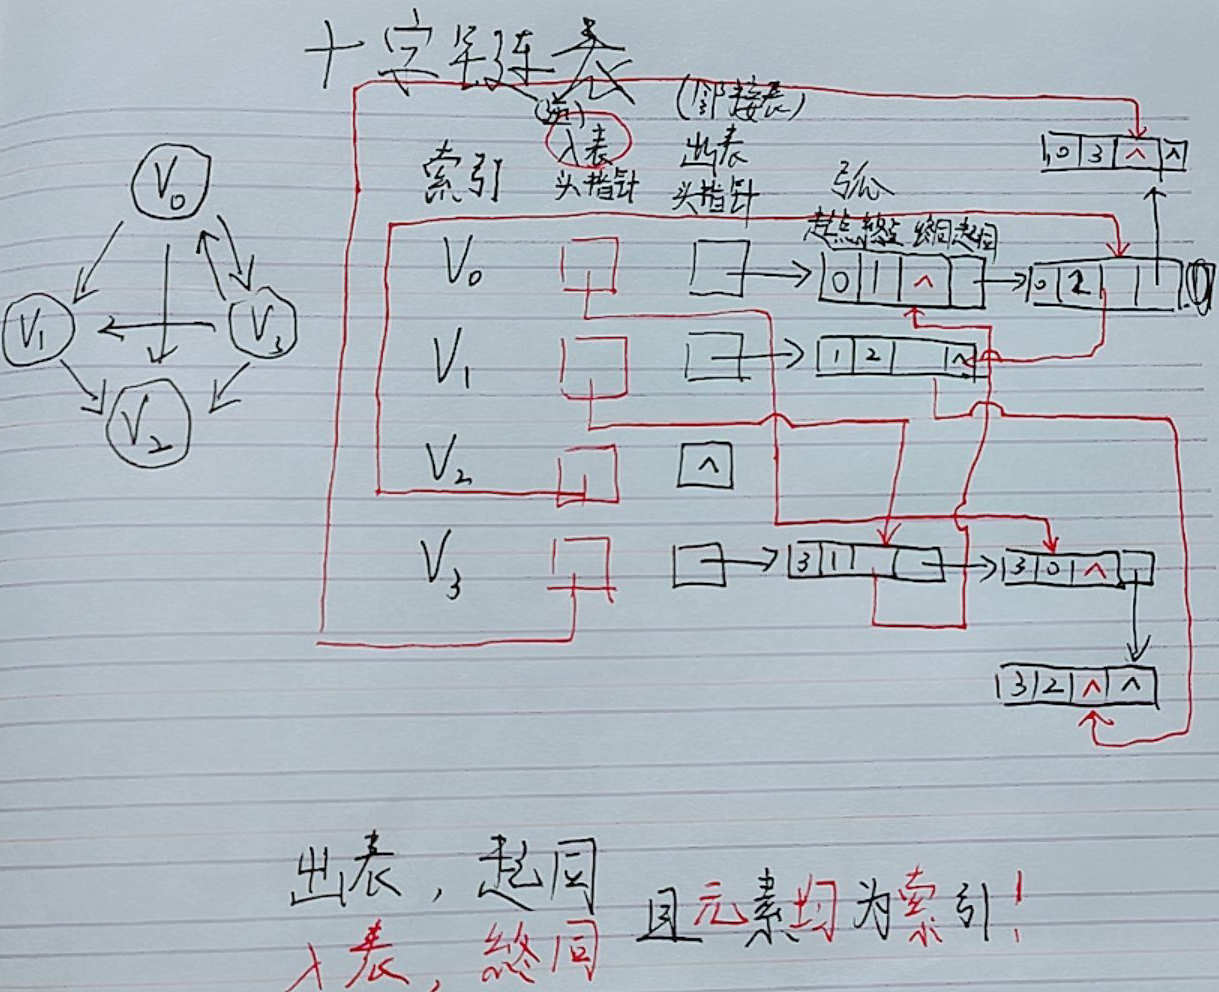 十字链表
(逆) (邻接表)
索引 入表头指针 出表头指针 弧
起点 终点 终同 起同
V₀ 0 1 ^ 0 2
0 3 ^ ^
V₁ 1 2 ^
V₂ ^
V₃ 3 1 3 0 ^
3 2 ^ ^
V₀
V₁ V₃
V₂
出表，起同
入表，终同
且元素均为索引！